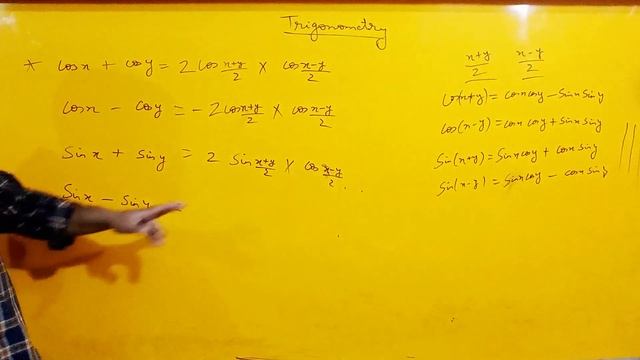 Trigonometry
* Cosx + cosy = 2 cos x+y/2 × cos x-y/2
Cosx - cosy = -2 cos x+y/2 × cos x-y/2
Sinx + Siny = 2 Sin x+y/2 × cos x-y/2 ..
Sinx - Siny
x+y/2 x-y/2
Cos(x+y) = cosx cosy - Sinx Siny
Cos(x-y) = cosx cosy + Sinx Siny
Sin(x+y) = Sinx cosy + cosx Siny
Sin(x-y) = Sinx cosy - cosx Siny